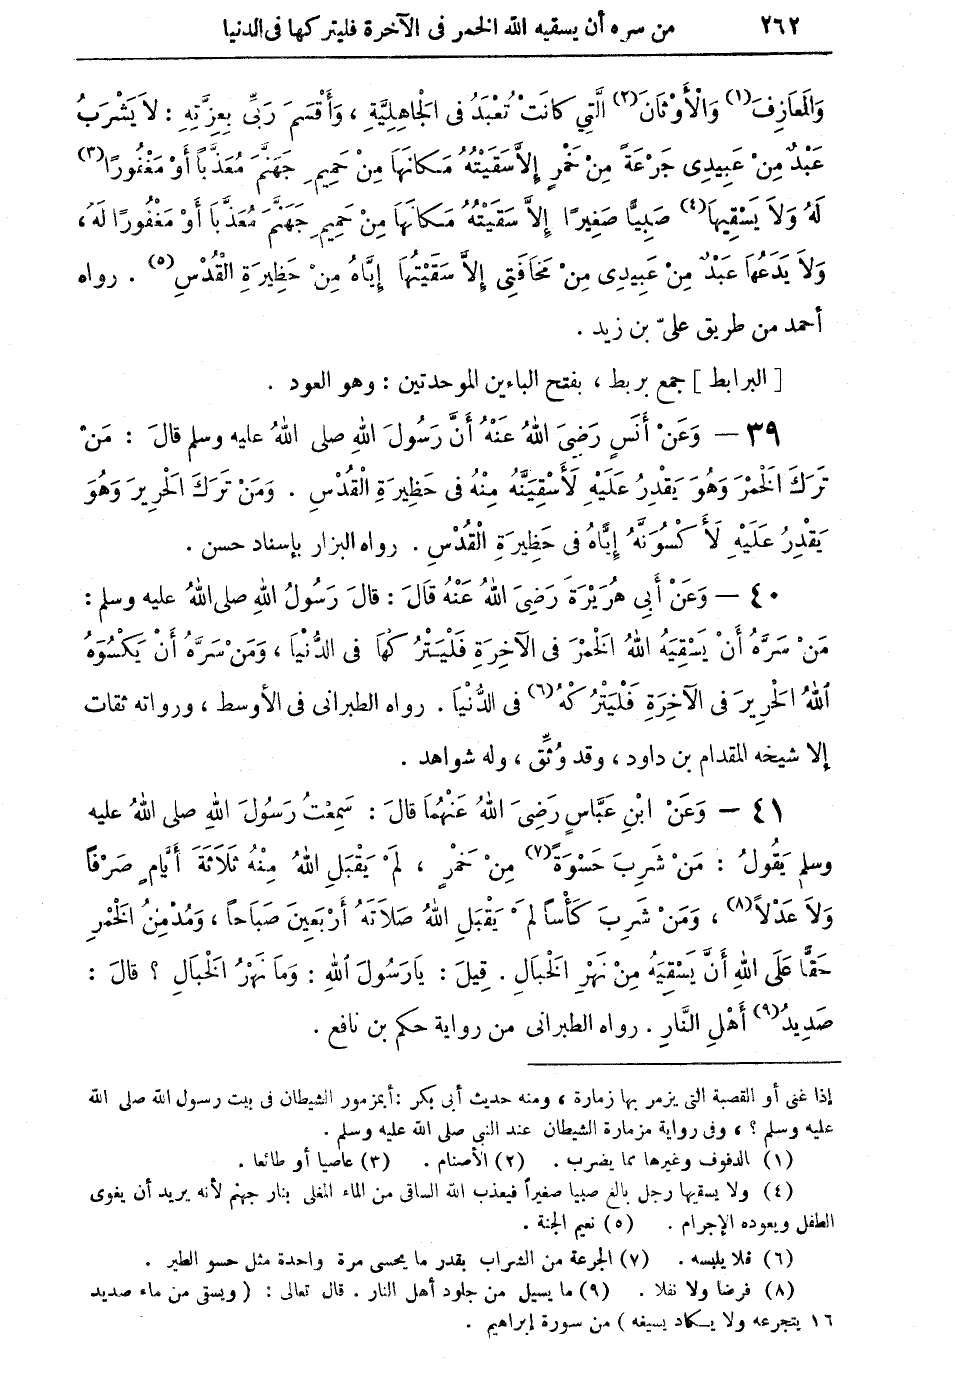 ٢٦٢ من سره أن يسقيه الله الخمر فى الآخرة فليتركها فى الدنيا
وَالْمَعَازِفَ(١) وَالْأَوْثَانَ(٢) الَّتِي كَانَتْ تُعْبَدُ فى الْجَاهِلِيَّةِ ، وَأَقْسَمَ رَبِّى بِعِزَّتِهِ : لاَ يَشْرَبُ
عَبْدٌ مِنْ عَبِيدِى جَرْعَةً مِنْ خَمْرٍ إِلاَّ سَقَيْتُهُ مَكَانَهَا مِنْ حَمِيمِ جَهَنَّمَ مُعَذَّباً أَوْ مَغْفُورًا(٣)
لَهُ وَلاَ يَسْقِيهَا(٤) صَبِيًّا صَغِيرًا إِلاَّ سَقَيْتُهُ مَكَانَهَا مِنْ حَمِيمِ جَهَنَّمَ مُعَذَّبًا أَوْ مَغْفُورًا لَهُ ،
وَلاَ يَدَعُهَا عَبْدٌ مِنْ عَبِيدِى مِنْ مَخَافَتِى إِلاَّ سَقَيْتُهَا إِيَّاهُ مِنْ حَظِيرَةِ الْقُدْسِ(٥) . رواه
أحمد من طريق علىّ بن زيد .
[ البرابط ] جمع بربط ، بفتح الباءين الموحدتين : وهو العود .
٣٩ — وَعَنْ أَنَسٍ رَضِىَ اللهُ عَنْهُ أَنَّ رَسُولَ اللهِ صلى اللهُ عليه وسلم قالَ : مَنْ
تَرَكَ الْخَمْرَ وَهُوَ يَقْدِرُ عَلَيْهِ لَأَسْقِيَنَّهُ مِنْهُ فى حَظِيرَةِ الْقُدْسِ . وَمَنْ تَرَكَ الْحَرِيرَ وَهُوَ
يَقْدِرُ عَلَيْهِ لَأَكْسُوَنَّهُ إِيَّاهُ فى حَظِيرَةِ الْقُدْسِ . رواه البزار بإسناد حسن .
٤٠ — وَعَنْ أَبِى هُرَيْرَةَ رَضِىَ اللهُ عَنْهُ قَالَ : قالَ رَسُولُ اللهِ صلى اللهُ عليه وسلم :
مَنْ سَرَّهُ أَنْ يَسْقِيَهُ اللهُ الْخَمْرَ فى الآخِرَةِ فَلْيَتْرُكْهَا فى الدُّنْيَا ، وَمَنْ سَرَّهُ أَنْ يَكْسُوَهُ
اللهُ الْحَرِيرَ فى الآخِرَةِ فَلْيَتْرُكْهُ(٦) فى الدُّنْيَا . رواه الطبرانى فى الأوسط ، ورواته ثقات
إلا شيخه المقدام بن داود ، وقد وُثِّقَ ، وله شواهد .
٤١ — وَعَنْ ابْنِ عَبَّاسٍ رَضِىَ اللهُ عَنْهُمَا قالَ : سَمِعْتُ رَسُولَ اللهِ صلى اللهُ عليه
وسلم يَقُولُ : مَنْ شَرِبَ حَسْوَةً(٧) مِنْ خَمْرٍ ، لَمْ يَقْبَلِ اللهُ مِنْهُ ثَلَاثَةَ أَيَّامٍ صَرْفًا
وَلاَ عَدْلاً(٨) ، وَمَنْ شَرِبَ كَأْساً لَمْ يَقْبَلِ اللهُ صَلاَتَهُ أَرْبَعِينَ صَبَاحاً ، وَمُدْمِنُ الْخَمْرِ
حَقًّا عَلَى اللهِ أَنَّ يَسْقِيَهُ مِنْ نَهْرِ الْخَبَالِ . قِيلَ : يَارَسُولَ اللهِ : وَمَا نَهْرُ الْخَبَالِ ؟ قالَ :
صَدِيدُ(٩) أَهْلِ النَّارِ . رواه الطبرانى من رواية حكم بن نافع .
إذا غنى أو القصبة التى يزمر بها زمارة ، ومنه حديث أبى بكر : أبمزمور الشيطان فى بيت رسول الله صلى الله
عليه وسلم ؟ ، وفى رواية مزمارة الشيطان عند النبى صلى الله عليه وسلم .
(١) الدفوف وغيرها مما يضرب . (٢) الأصنام . (٣) عاصيا أو طائعا .
(٤) ولا يسقيها رجل بالغ صبيا صغيراً فيعذب الله الساقى من الماء المغلى بنار جهنم لأنه يريد أن يغوى
الطفل ويعوده الإجرام . (٥) نعيم الجنة .
(٦) فلا يلبسه . (٧) الجرعة من الشراب بقدر ما يحسى مرة واحدة مثل حسو الطير .
(٨) فرضا ولا نفلا . (٩) ما يسيل من جلود أهل النار . قال تعالى : ( ويسقى من ماء صديد
١٦ يتجرعه ولا يكاد يسيغه ) من سورة إبراهيم .